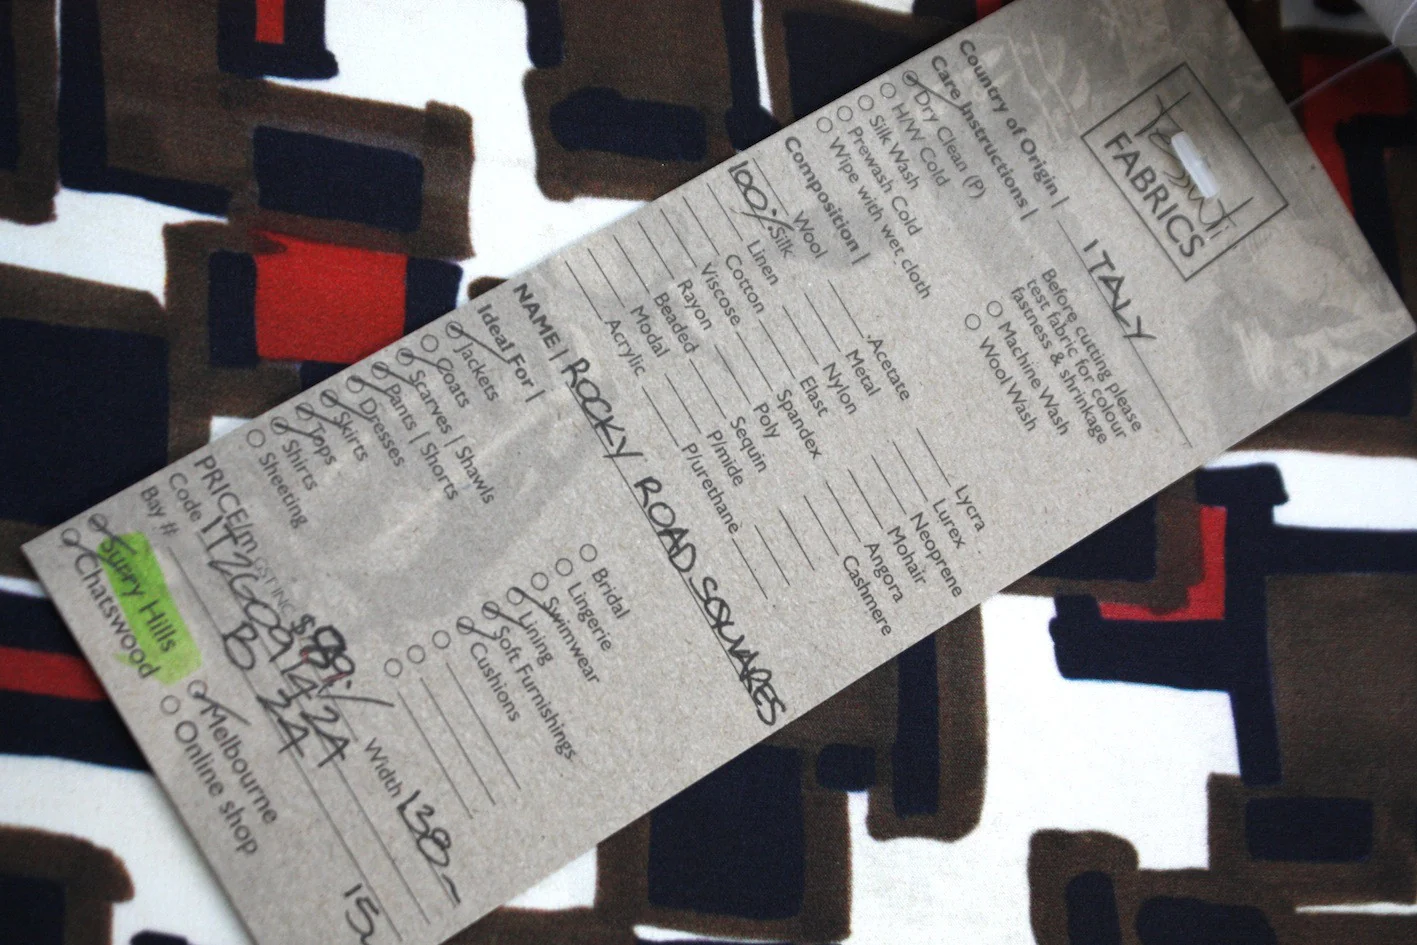 Tessuti
FABRICS
Country of Origin | ITALY
Care Instructions |
Dry Clean (P)
H/W Cold
Silk Wash
Prewash Cold
Wipe with wet cloth
Before cutting please
test fabric for colour
fastness & shrinkage
Machine Wash
Wool Wash
Composition |
Wool Acetate Lycra
100% Silk Metal Lurex
Linen Nylon Neoprene
Cotton Elast Mohair
Viscose Spandex Angora
Rayon Poly Cashmere
Beaded Sequin
Modal P/mide
Acrylic P/urethane
NAME | ROCKY ROAD SQUARES
Ideal For |
Jackets
Coats
Scarves | Shawls
Pants | Shorts
Dresses
Skirts
Tops
Shirts
Sheeting
Bridal
Lingerie
Swimwear
Lining
Soft Furnishings
Cushions
PRICE/m GST INC $89./ Width 138
Bay # B 24
Surry Hills
Chatswood
Melbourne
Online shop